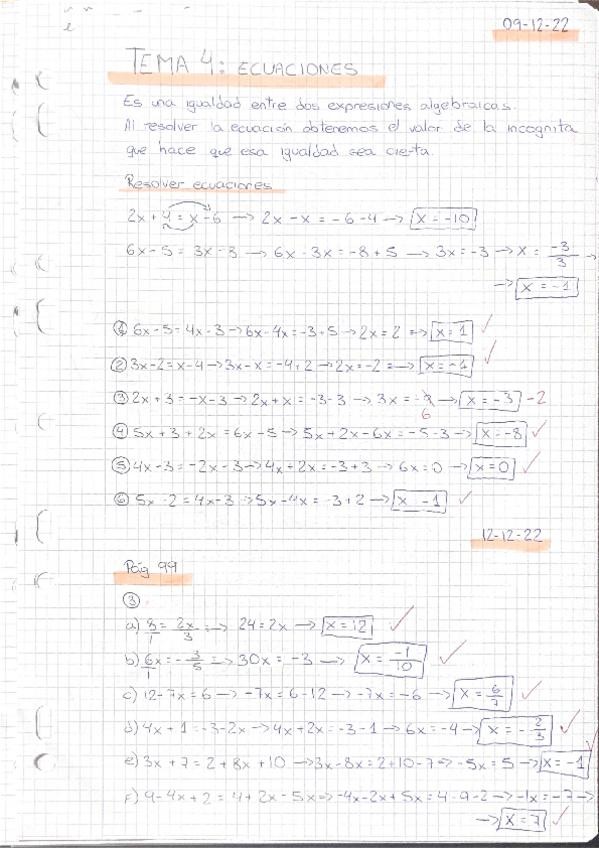 09-12-22
TEMA 4: ECUACIONES
Es una igualdad entre dos expresiones algebraicas.
Al resolver la ecuación obtenemos el valor de la incognita
que hace que esa igualdad sea cierta.
Resolver ecuaciones
2x + 4 = x - 6 → 2x - x = -6 - 4 → x = -10
6x - 5 = 3x - 8 → 6x - 3x = -8 + 5 → 3x = -3 → x = -3/3 →
→ x = -1
① 6x - 5 = 4x - 3 → 6x - 4x = -3 + 5 → 2x = 2 → x = 1
② 3x - 2 = x - 4 → 3x - x = -4 + 2 → 2x = -2 → x = -1
③ 2x + 3 = -x - 3 → 2x + x = -3 - 3 → 3x = -9 → x = -3 -2
6
④ 5x + 3 + 2x = 6x - 5 → 5x + 2x - 6x = -5 - 3 → x = -8
⑤ 4x - 3 = -2x - 3 → 4x + 2x = -3 + 3 → 6x = 0 → x = 0
⑥ 5x - 2 = 4x - 3 → 5x - 4x = -3 + 2 → x -1
12-12-22
Pág 99
③
a) 8/1 = 2x/3 → 24 = 2x → x = 12
b) 6x/1 = -3/5 → 30x = -3 → x = -1/10
c) 12 - 7x = 6 → -7x = 6 - 12 → -7x = -6 → x = 6/7
d) 4x + 1 = -3 - 2x → 4x + 2x = -3 - 1 → 6x = -4 → x = -2/3
e) 3x + 7 = 2 + 8x + 10 → 3x - 8x = 2 + 10 - 7 → -5x = 5 → x = -1
F) 9 - 4x + 2 = 4 + 2x - 5x → -4x - 2x + 5x = 4 - 9 - 2 → -1x = -7 →
→ x = 7